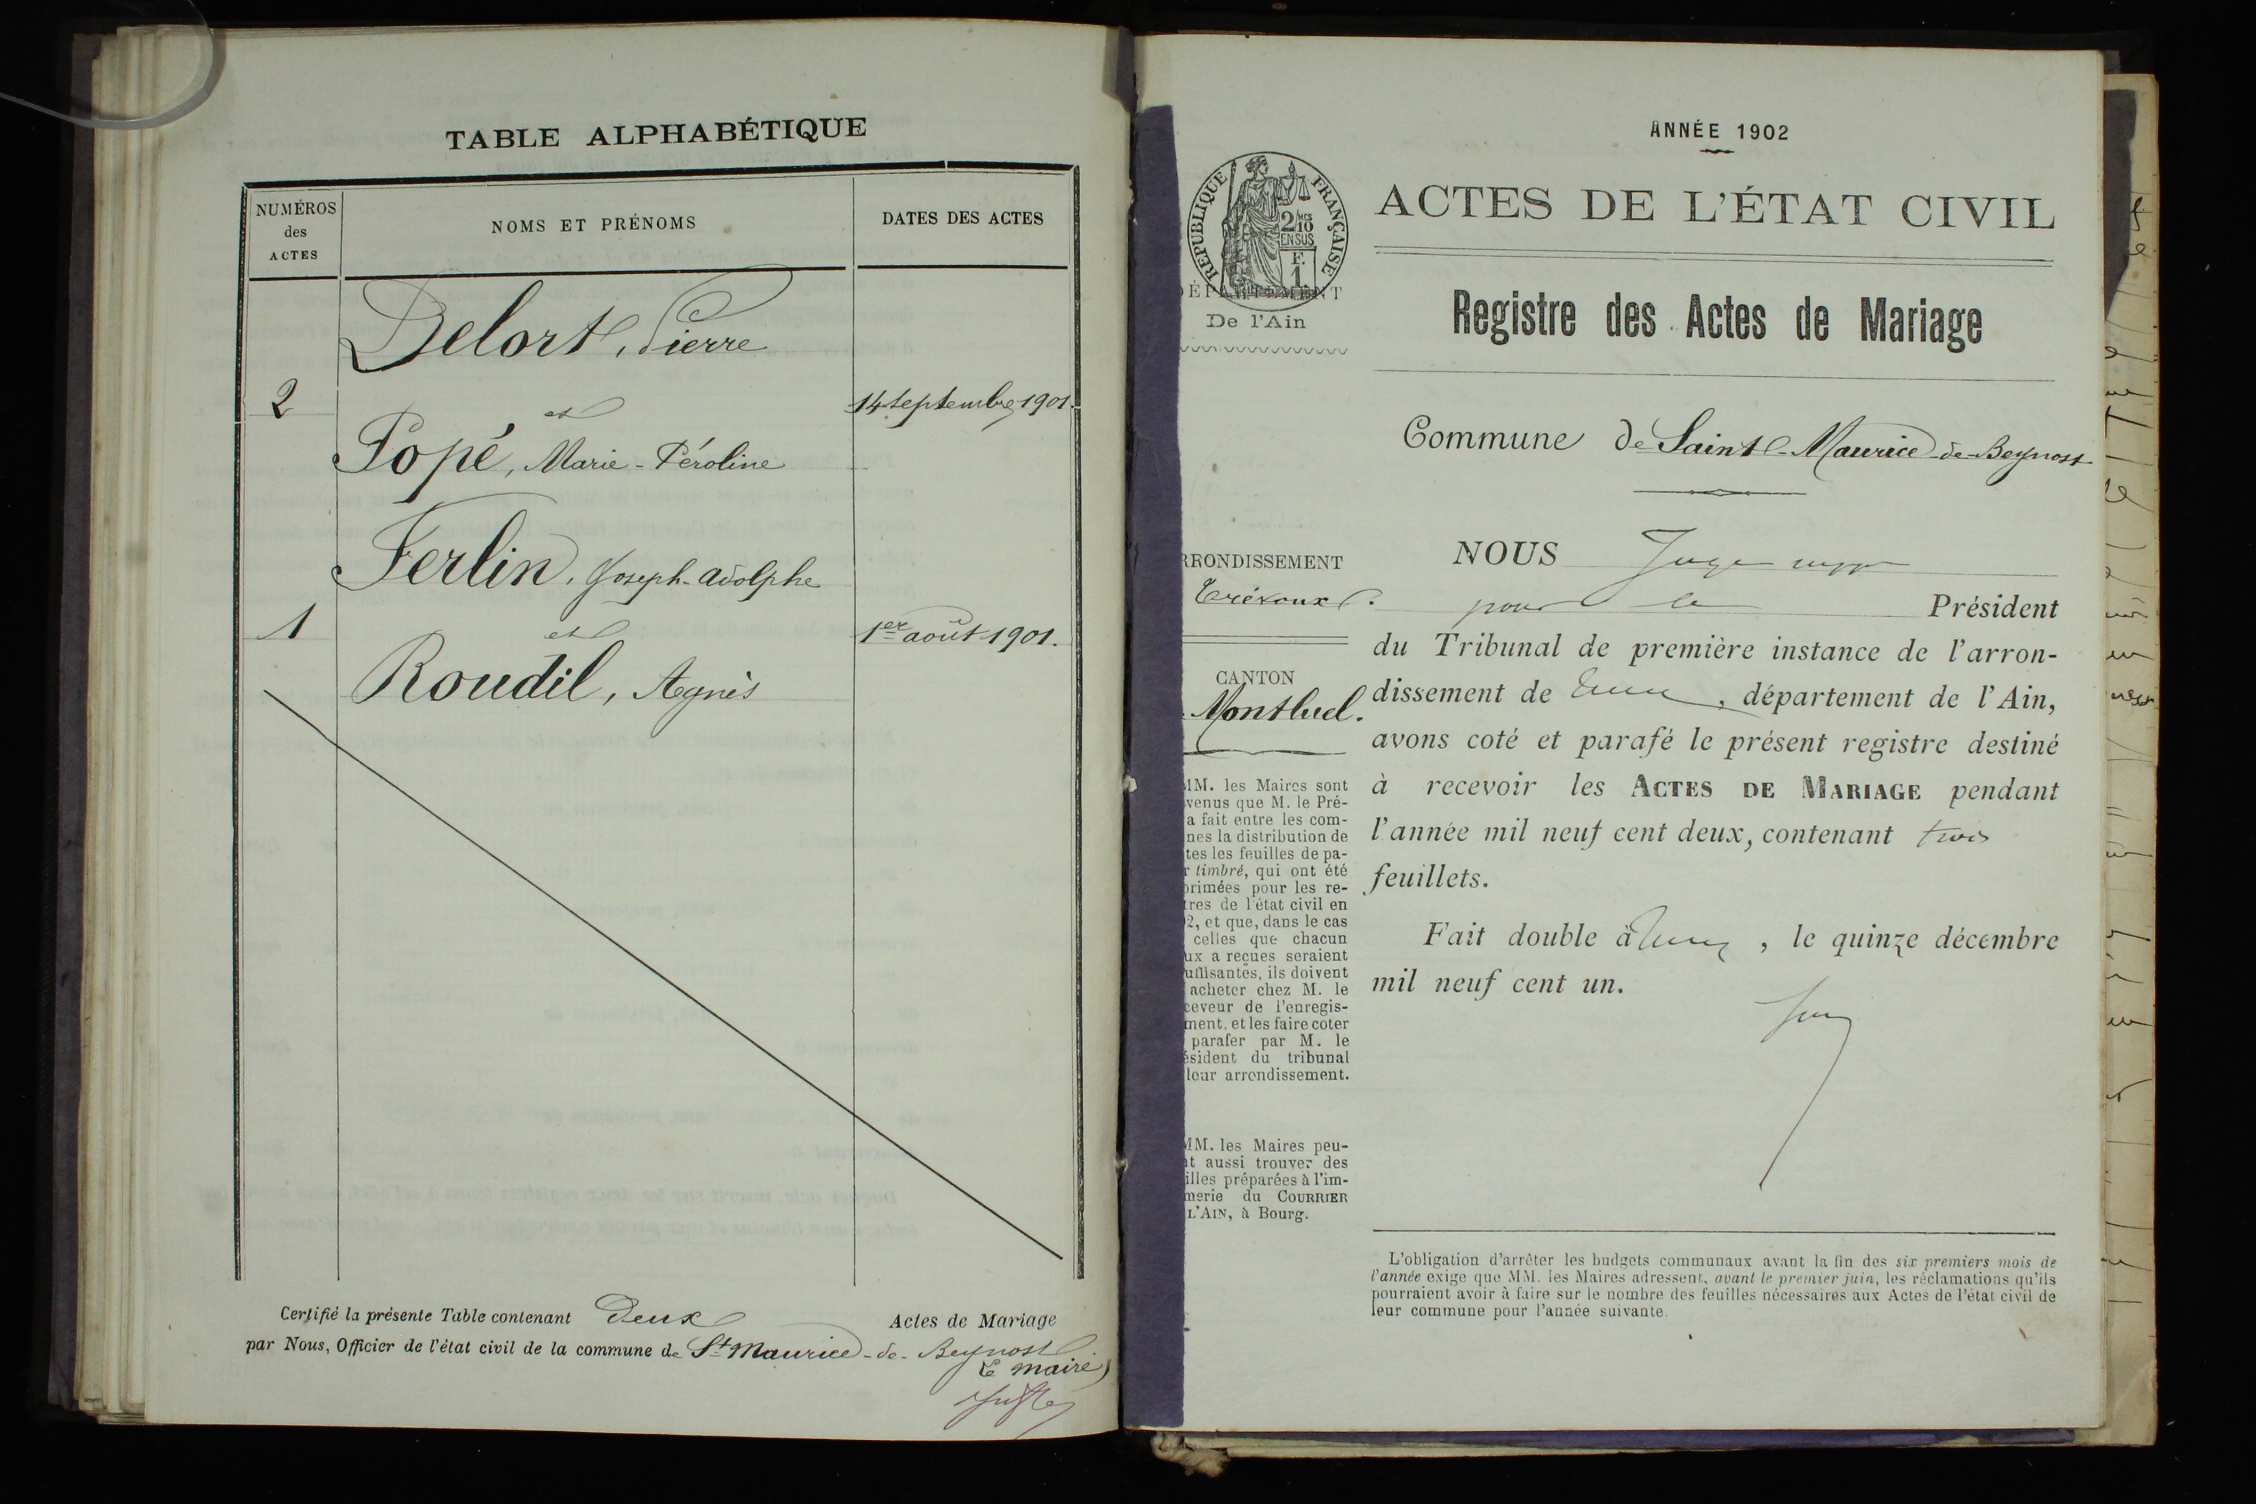 TABLE ALPHABÉTIQUE
NUMÉROS
des
ACTES
NOMS ET PRÉNOMS
DATES DES ACTES
Delort, Pierre
2
et
14 septembre 1901.
Popé, Marie-Péroline
Ferlin, Joseph-Adolphe
1
et
1er août 1901.
Roudil, Agnès
Certifié la présente Table contenant Deux Actes de Mariage
par Nous, Officier de l'état civil de la commune de St Maurice-de-Beynost
Le maire
ANNÉE 1902
RÉPUBLIQUE FRANÇAISE
2/10
EN SUS
F.
1
DÉPARTEMENT
De l'Ain
ARRONDISSEMENT
Trévoux.
CANTON
Montluel.
MM. les Maires sont
venus que M. le Pré-
a fait entre les com-
nes la distribution de
tes les feuilles de pa-
r timbré, qui ont été
primées pour les re-
tres de l'état civil en
2, et que, dans le cas
celles que chacun
ux a reçues seraient
uffisantes, ils doivent
acheter chez M. le
ceveur de l'enregis-
ment, et les faire coter
parafer par M. le
ésident du tribunal
leur arrondissement.
MM. les Maires peu-
nt aussi trouver des
illes préparées à l'im-
merie du COURRIER
L'AIN, à Bourg.
ACTES DE L'ÉTAT CIVIL
Registre des Actes de Mariage
Commune de Saint-Maurice-de-Beynost
NOUS Juge
pour le Président
du Tribunal de première instance de l'arron-
dissement de , département de l'Ain,
avons coté et parafé le présent registre destiné
à recevoir les ACTES DE MARIAGE pendant
l'année mil neuf cent deux, contenant trois
feuillets.
Fait double à , le quinze décembre
mil neuf cent un.
L'obligation d'arrêter les budgets communaux avant la fin des six premiers mois de
l'année exige que MM. les Maires adressent, avant le premier juin, les réclamations qu'ils
pourraient avoir à faire sur le nombre des feuilles nécessaires aux Actes de l'état civil de
leur commune pour l'année suivante.